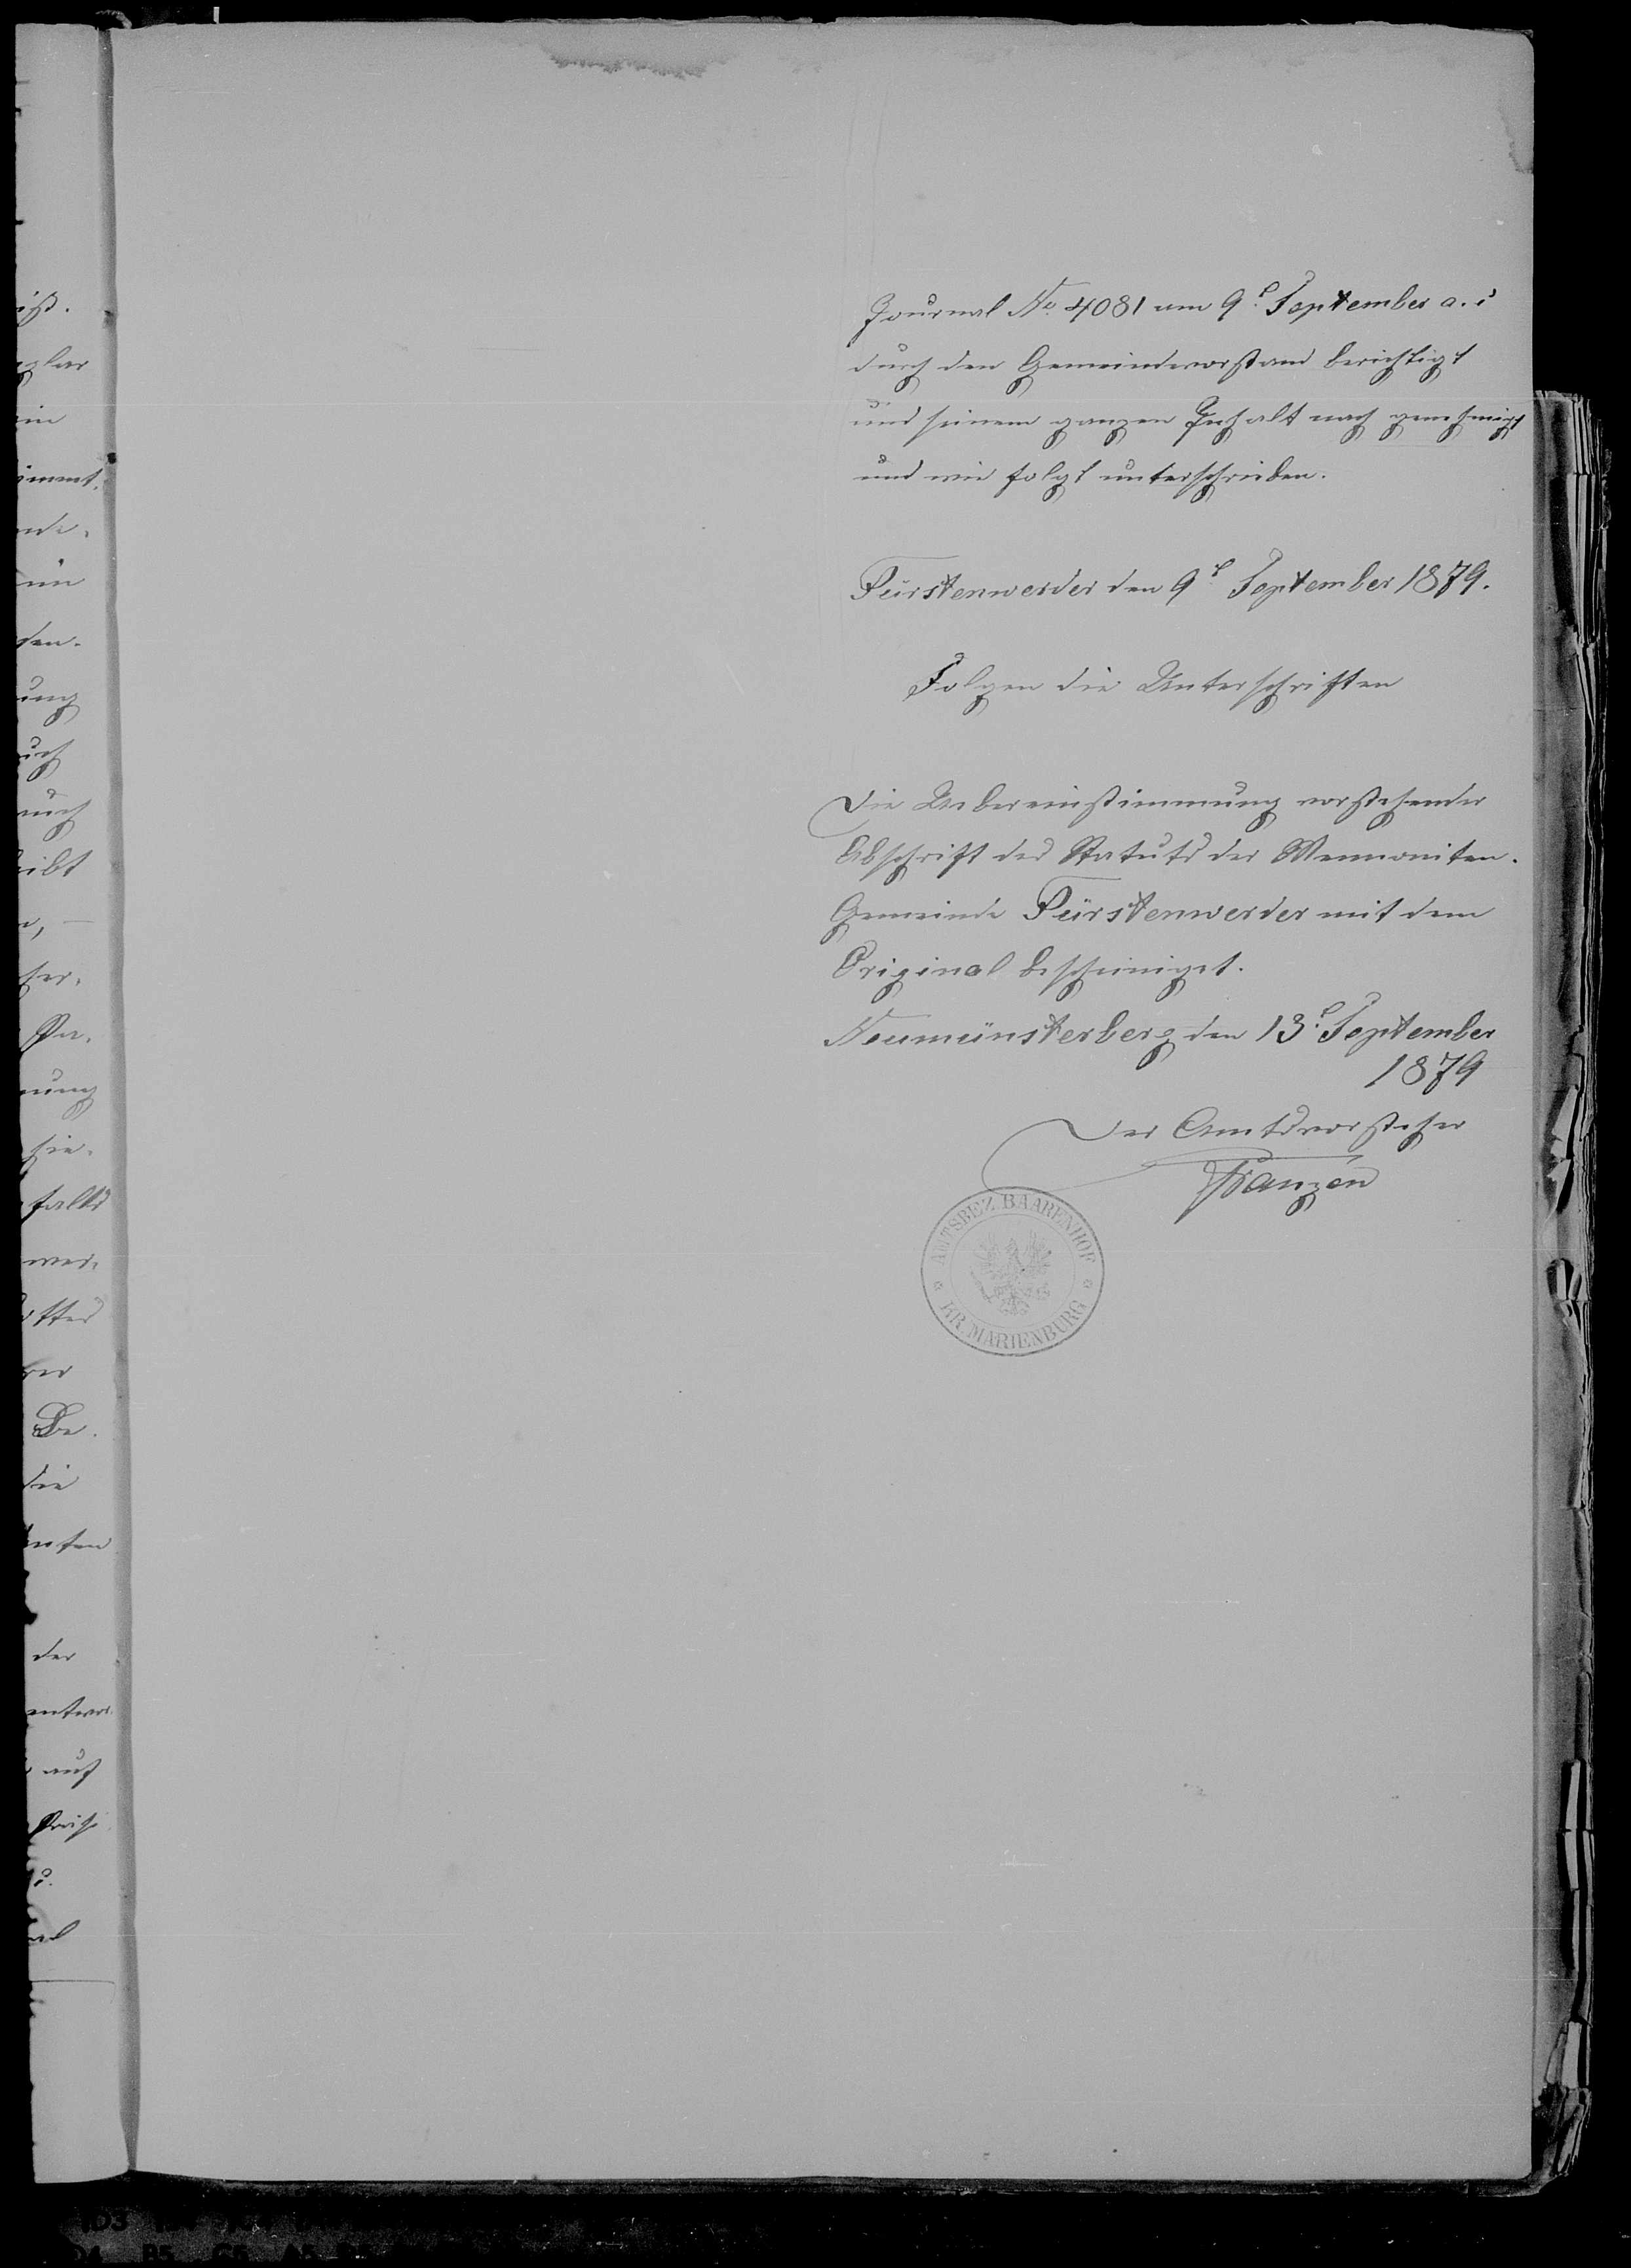 Journal No. 4081 am 9t September a. c.
durch den Gemeindevorstand berichtigt
und seinem ganzen Inhalt nach genehmigt
und wie folgt unterschrieben.
Fürstenwerder den 9t September 1879.
Folgen die Unterschriften
Die Uebereinstimmung vorstehender
Abschrift des Statuts der Mennoniten-
Gemeinde Fürstenwerder mit dem
Original bescheiniget.
Neumünsterberg den 13t September
1879
Der Amtsvorsteher
Franzen
AMTSBEZ. BAARENHOF
KR. MARIENBURG